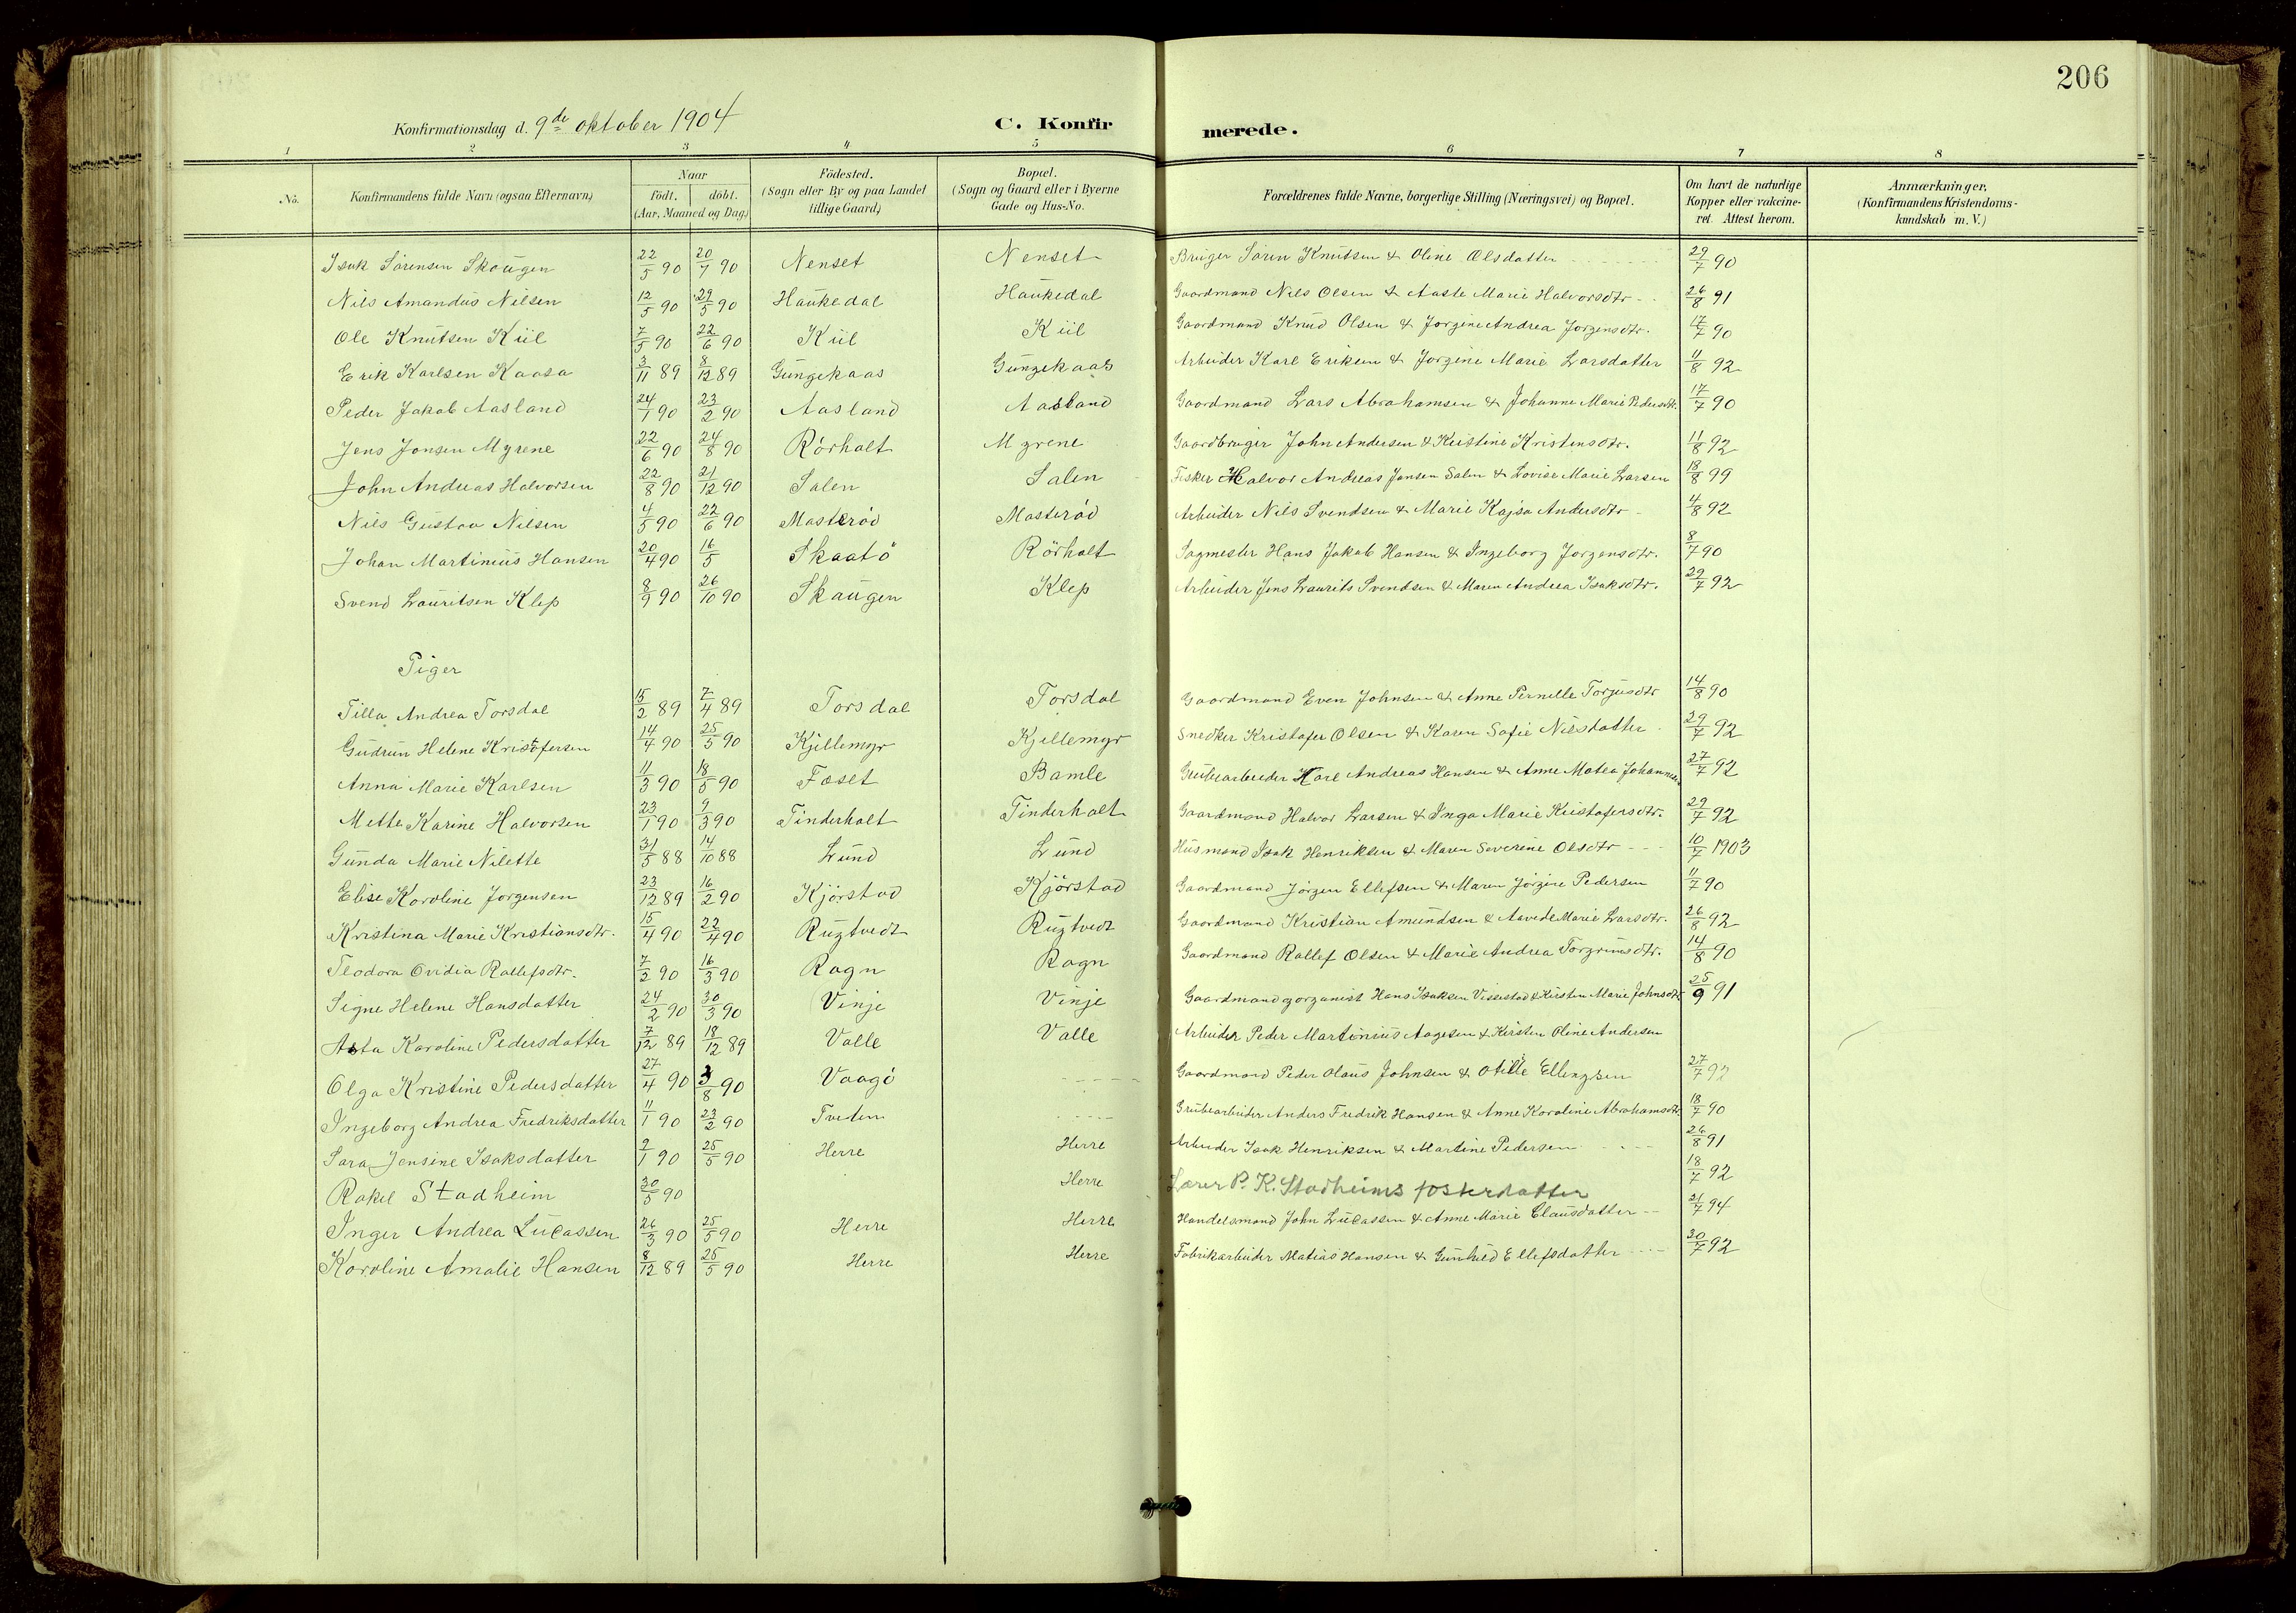 206
Konfirmationsdag d. 9de oktober 1904 C. Konfirmerede.
1 2 3 4 5 6 7 8
No. Konfirmandens fulde Navn (ogsaa Efternavn) Naar født. døbt. (Aar, Maaned og Dag) Födested. (Sogn eller By og paa Landet tillige Gaard) Bopæl. (Sogn og Gaard eller i Byerne Gade og Hus-No. Forældrenes fulde Navne, borgerlige Stilling (Næringsvei) og Bopæl. Om havt de naturlige Kopper eller vakcineret. Attest herom. Anmærkninger. (Konfirmandens Kristendomskundskab m. V.)
Isak Sørensen Skougen 22/5 90 20/7 90 Nenset Nenset Bruger Sørin Knutsen & Oline Olsdatter 29/7 90
Nils Amandus Nilsen 12/5 90 29/5 90 Haukedal Haukedal Gaardmand Nils Olsen & Aaste Marie Halvorsdtr 26/8 91
Ole Knutsen Kiil 7/5 90 22/6 90 Kiil Kiil Gaardmand Knud Olsen & Jørgine Andrea Jørgensdtr. 17/7 90
Erik Karlsen Kaasa 3/11 89 8/12 89 Gungekaas Gungekaas Arbeider Karl Eriksen & Jørgine Marie Larsdatter 11/8 92
Peder Jakob Aasland 24/1 90 23/2 90 Aasland Aasland Gaardmand Lars Abrahamsen & Johanne Marie Pedersdtr. 17/7 90
Jens Jonsen Myrene 22/6 90 24/8 90 Rörholt Myrene Gaardbruger John Andersen & Kristine Kristensdtr. 11/8 92
John Andreas Halvorsen 22/8 90 21/12 90 Salen Salen Fisker Halvor Andreas Jansen Salen & Lovise Marie Larsen 18/8 99
Nils Gustav Nilsen 4/5 90 22/6 90 Masterød Masterød Arbeider Nils Svendsen & Marie Kajsa Andersdtr 4/8 92
Johan Martinius Hansen 20/4 90 16/5 Skaatö Rörholt Sagmester Hans Jakob Hansen & Ingeborg Jørgensdtr. 8/7 90
Svend Lauritsen Klep 8/9 90 26/10 90 Skaugen Klep Arbeider Jens Laurits Svendsen & Maren Andrea Isaksdtr. 29/7 92
Piger
Tilla Andrea Torsdal 15/2 89 7/4 89 Torsdal Torsdal Gaardmand Even Johnsen & Anne Pernelle Torjusdtr 14/8 90
Gudrun Helene Kristofersen 14/4 90 25/5 90 Kjellemyr Kjellemyr Snedker Kristofer Olsen & Karen Sofie Nilsdatter 29/7 92
Anna Marie Karlsen 11/3 90 18/5 90 Foset Bamle Grubearbeider Karl Andreas Hansen & Anne Matea Johannes 27/7 92
Mette Karine Halvorsen 23/1 90 9/3 90 Tinderholt Tinderholt Gaardmand Halvor Larsen & Inga Marie Kristofersdtr. 29/7 92
Gunda Marie Nilette 31/5 88 14/10 88 Lund Lund Husmand Isak Henriksen & Maren Severine Olsdtr 10/7 1903
Elise Karoline Jørgensen 23/12 89 16/2 90 Kjörstad Kjörstad Gaardmand Jørgen Ellefsen & Maren Jørgine Pedersen 11/7 90
Kristina Marie Kristiansdtr. 15/4 90 22/4 90 Rugtvedt Rugtvedt Gaardmand Kristian Amundsen & Marie Larsdtr. 26/8 92
Teodora Ovidia Rollefsdtr. 7/2 90 16/3 90 Rogn Rogn Gaardmand Rollef Olsen & Marie Andrea Torgrimsdtr. 14/8 90
Signe Helene Hansdatter 24/2 90 30/3 90 Vinje Vinje Gaardmand og organist Hans Isaksen Vissestad & Kirsten Marie Johnsdtr 25/9 91
Asta Karoline Pedersdatter 7/12 89 18/12 89 Valle Valle Arbeider Peder Martinius Aagesen & Kirsten Oline Andersen
Olga Kristine Pedersdatter 27/4 90 3/8 90 Vaagö Gaardmand Peder Olaus Johnsen & Otilie Ellingsen 27/7 92
Ingeborg Andrea Fredriksdatter 11/1 90 23/2 90 Tveten Grubearbeider Anders Fredrik Hansen & Anne Karoline Abrahamsdtr 18/7 90
Sara Jensine Isaksdatter 2/1 90 25/5 90 Herre Herre Arbeider Isak Henriksen & Martine Pedersen 26/8 91
Rakel Stadheim 30/5 90 Herre Lærer P. K. Stadheims fosterdatter 18/7 92
Inger Andrea Lucassen 26/3 90 25/5 90 Herre Herre Handelsmand John Lucassen & Anne Marie Clausdatter 21/7 94
Karoline Amalie Hansen 8/12 89 25/5 90 Herre Herre Fabrikarbeider Matias Hansen & Gunhild Ellefsdatter 30/7 92